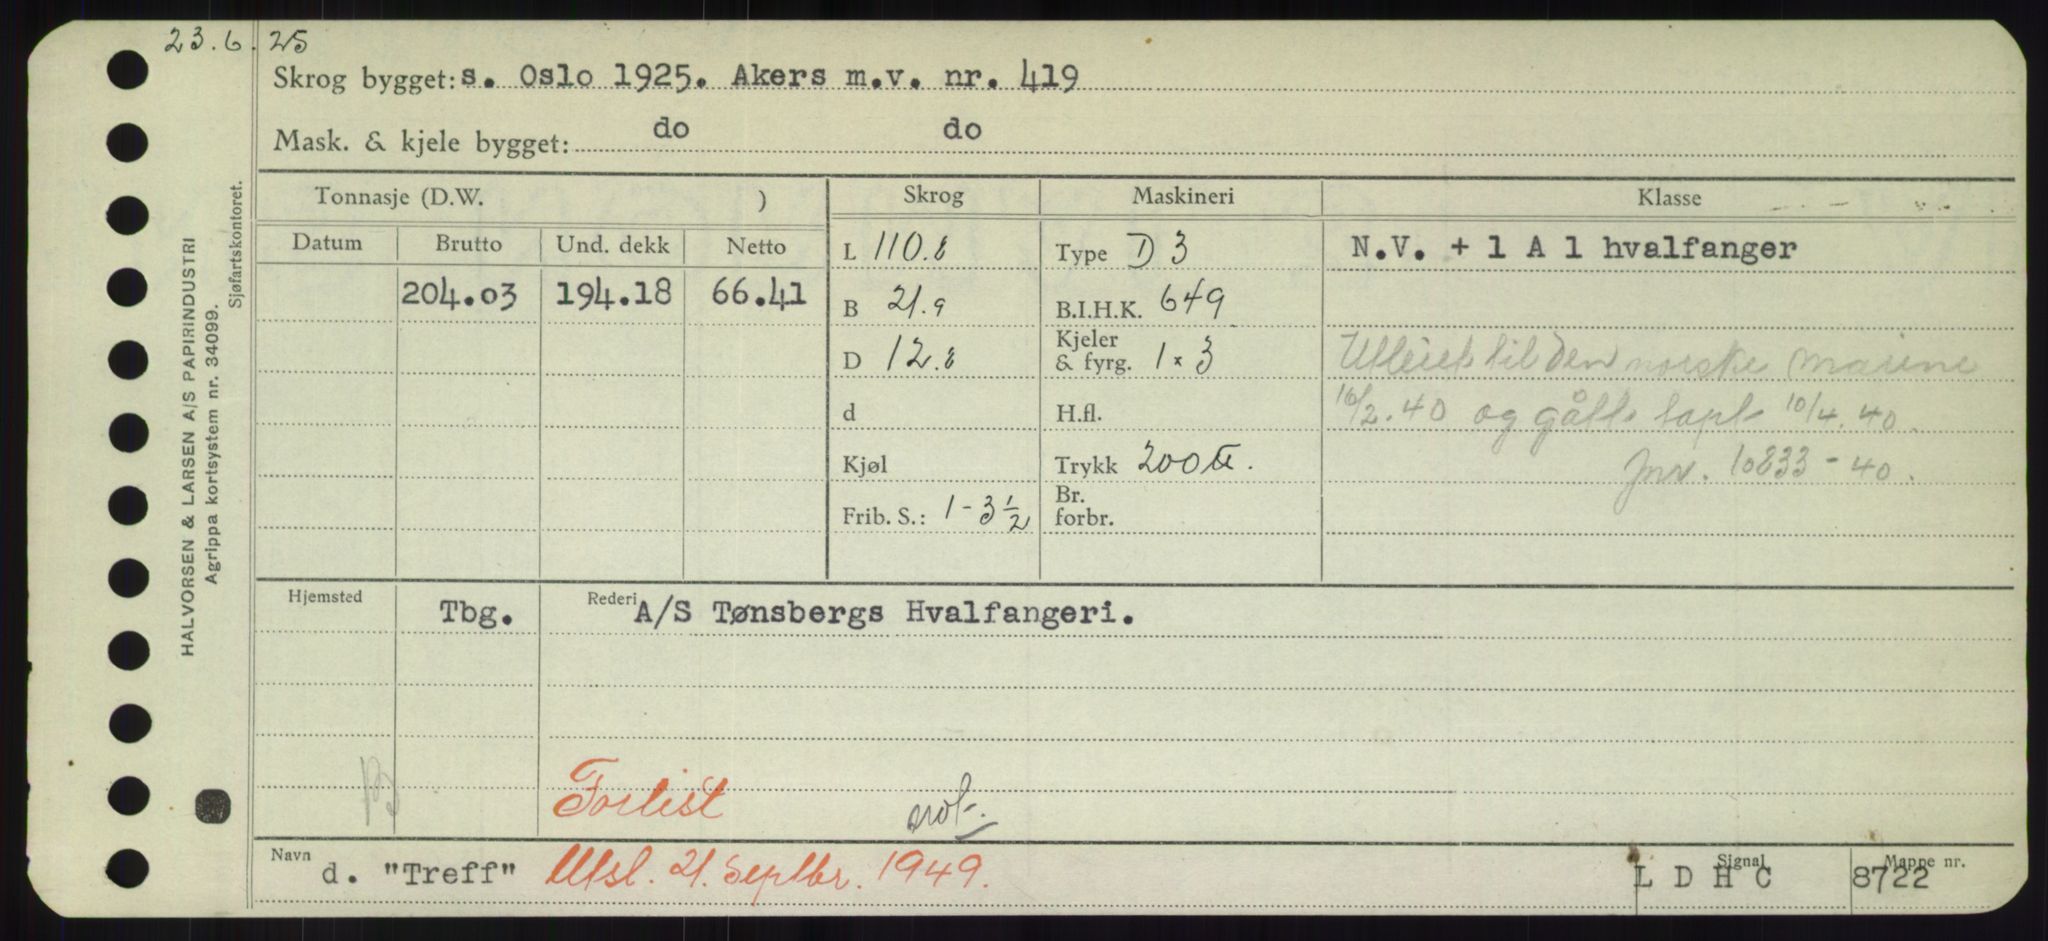 23.6.25
Skrog bygget: s. Oslo 1925. Akers m.v. nr. 419
Mask. & kjele bygget: do do
Tonnasje (D.W. ) Skrog Maskineri Klasse
Datum Brutto Und. dekk Netto L 110.8 Type D 3 N.V. + 1 A 1 hvalfanger
204.03 194.18 66.41 B 21.9 B.I.H.K. 649
Kjeler
D 12.8 & fyrg. 1 x 3 Utleiet til den norske marine
d H.fl. 16/2.40 og gått tapt 10/4.40.
Kjøl Trykk 200 lb. Jnr. 10833-40.
Br.
Frib. S.: 1 - 3 1/2 forbr.
Hjemsted Tbg. Rederi A/S Tønsbergs Hvalfangeri.
Forlist not.
Navn d. "Treff" Utsl. 21. Septbr. 1949. Signal L D H C Mappe nr. 8722
HALVORSEN & LARSEN A/S PAPIRINDUSTRI
Agrippa kortsystem nr. 34099.
Sjøfartskontoret.